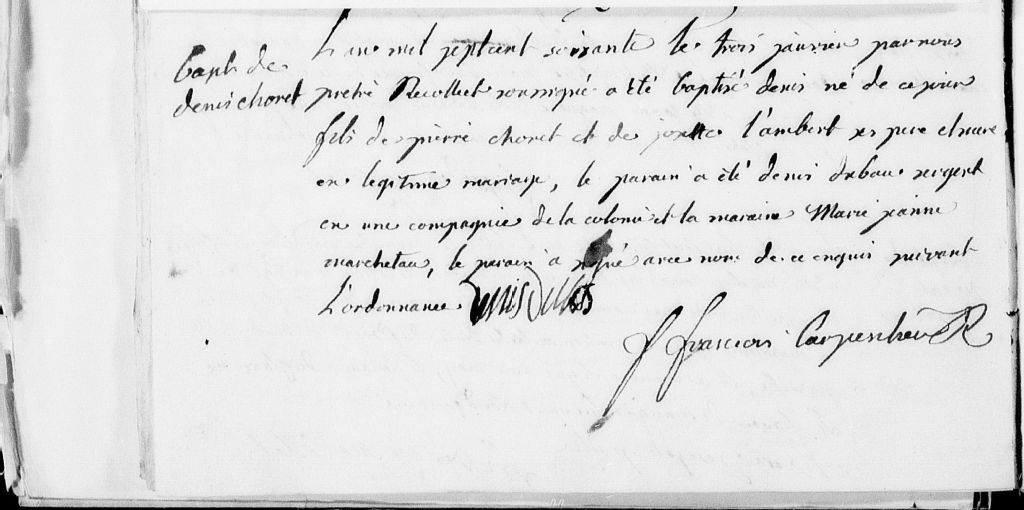 Bapt. de
denis choret
L'an mil sept cent soixante le trois janvier par nous
pretre Recollect soussigné a été baptisé denis né de ce jour
fils de pierre choret et de josette l'ambert ses pere et mere
en legitime mariage, le parain a été denis dubau sergent
en une compagnie de la colonie et la maraine Marie jeanne
marcheteau, le parain a signé avec nous de ce enquis suivant
L'ordonnance. Denis
f françois Carpentier R